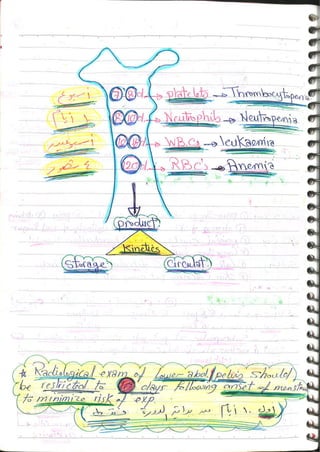 أسبوع 7 8 d. → Platelets → Thrombocytopenia
8 10 d. → Neutrophils → Neutropenia
أسبوعين d. → WBCs → leukaemia
120 d. → RBC's → Anemia
product
Kinetics
Storage Circulat
* Radiological exam of lower abd/pelvis should
be restricted to 10 days following onset of menst
to minimize risk of exp.
أول ١٠ أيام من بداية الدورة فقط